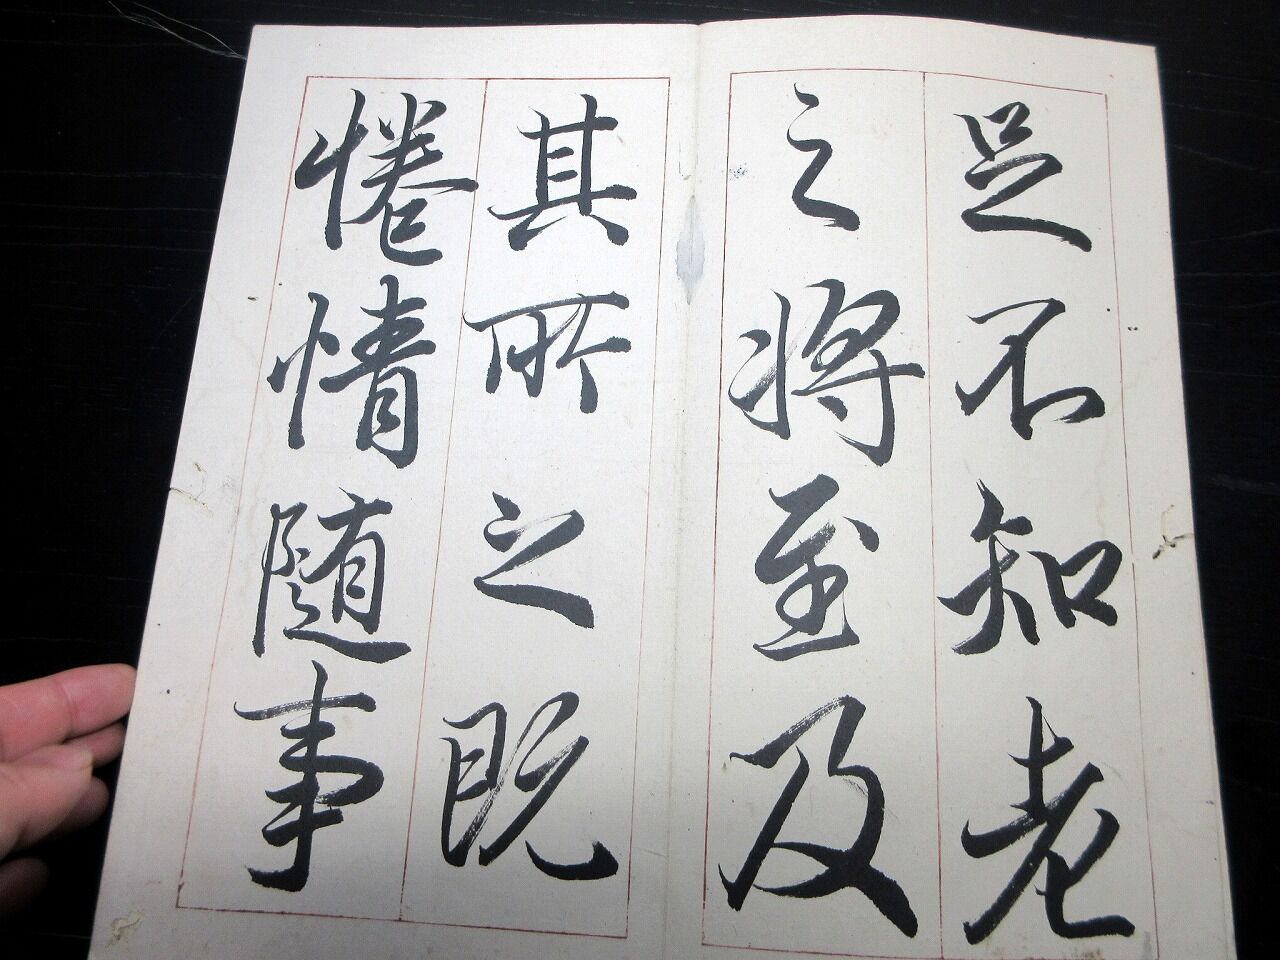 足不知老
之将至及
其所之既
惓情随事